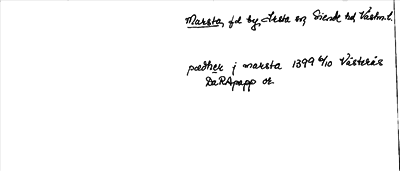 Marsta, fd by, Irsta sn, Siende hd, Västm.l.
pædher j marsta 1399 6/10 Västerås
DaRApapp or.